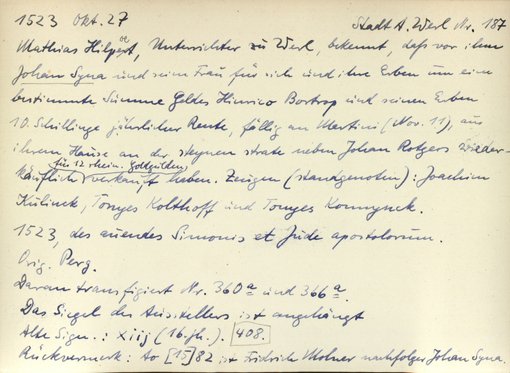 1523 Okt. 27 Stadt A. Werl Nr. 187
Mathias Hilpert, Unterrichter zu Werl, bekennt, daß vor ihm
Johan Syna und seine Frau für sich und ihre Erben um eine
bestimmte Summe Geldes Hinrico Bortrop und seinen Erben
10 Schillinge jährlicher Rente, fällig an Martini (Nov. 11), aus
ihrem Hause an der steynen strate neben Johan Rotgers wieder-
für 12 rhein. Goldgulden
käuflich verkauft haben. Zeugen (standgenoten): Joachim
Kulinck, Tonyes Kolthoff und Tonyes Konnynck.
1523, des avendes Simonis et Jude apostolorum.
Orig. Perg.
Daran transfigiert Nr. 360a und 366a.
Das Siegel des Ausstellers ist angehängt
Alte Sign.: xiij (16. Jh.). 408.
Rückvermerk: Ao [15]82 ist Fridrich Molner nachfolger Johan Syna.